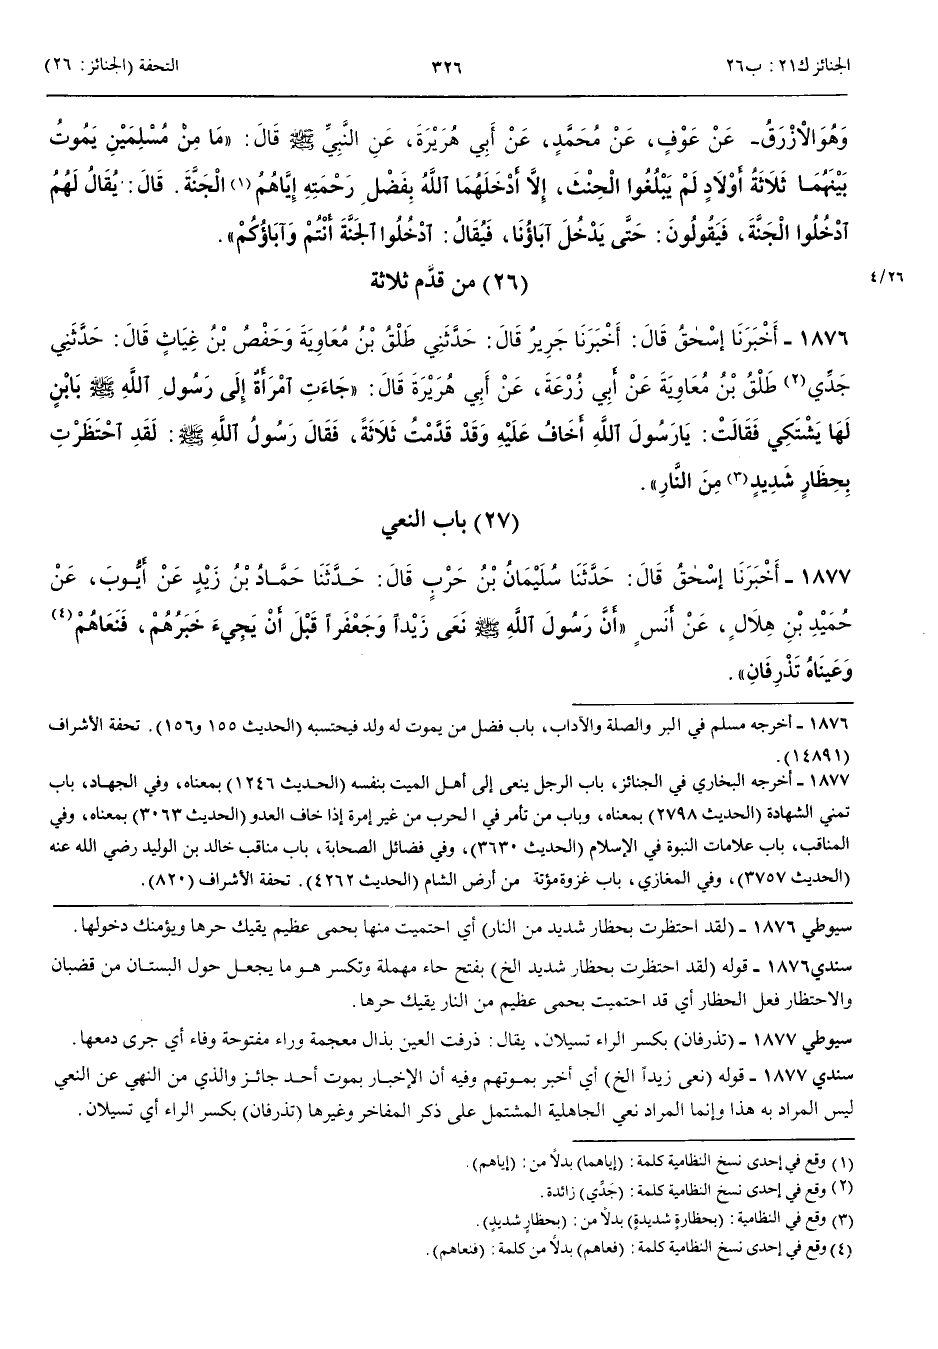 الجنائز ك٢١: ب٢٦ ٣٢٦ التحفة (الجنائز: ٢٦)
وَهُوَ الْأَزْرَقُ- عَنْ عَوْفٍ، عَنْ مُحَمَّدٍ، عَنْ أَبِي هُرَيْرَةَ، عَنِ النَّبِيِّ ﷺ قَالَ: «مَا مِنْ مُسْلِمَيْنِ يَمُوتُ
بَيْنَهُمَا ثَلَاثَةُ أَوْلَادٍ لَمْ يَبْلُغُوا الْحِنْثَ، إِلَّا أَدْخَلَهُمَا ٱللَّهُ بِفَضْلِ رَحْمَتِهِ إِيَّاهُمُ(١) الْجَنَّةَ. قَالَ: يُقَالُ لَهُمُ
ٱدْخُلُوا الْجَنَّةَ، فَيَقُولُونَ: حَتَّى يَدْخُلَ آبَاؤُنَا، فَيُقَالُ: ٱدْخُلُوا ٱلْجَنَّةَ أَنْتُمْ وَآبَاؤُكُمْ».
٤/٢٦ (٢٦) من قدَّم ثلاثة
١٨٧٦ - أَخْبَرَنَا إِسْحٰقُ قَالَ: أَخْبَرَنَا جَرِيرٌ قَالَ: حَدَّثَنِي طَلْقُ بْنُ مُعَاوِيَةَ وَحَفْصُ بْنُ غِيَاثٍ قَالَ: حَدَّثَنِي
جَدِّي(٢) طَلْقُ بْنُ مُعَاوِيَةَ عَنْ أَبِي زُرْعَةَ، عَنْ أَبِي هُرَيْرَةَ قَالَ: «جَاءَتِ ٱمْرَأَةٌ إِلَى رَسُولِ ٱللَّهِ ﷺ بِٱبْنٍ
لَهَا يَشْتَكِي فَقَالَتْ: يَارَسُولَ ٱللَّهِ أَخَافُ عَلَيْهِ وَقَدْ قَدَّمْتُ ثَلَاثَةً، فَقَالَ رَسُولُ ٱللَّهِ ﷺ: لَقَدِ ٱحْتَظَرْتِ
بِحِظَارٍ شَدِيدٍ(٣) مِنَ النَّارِ».
(٢٧) باب النعي
١٨٧٧ - أَخْبَرَنَا إِسْحٰقُ قَالَ: حَدَّثَنَا سُلَيْمَانُ بْنُ حَرْبٍ قَالَ: حَدَّثَنَا حَمَّادُ بْنُ زَيْدٍ عَنْ أَيُّوبَ، عَنْ
حُمَيْدِ بْنِ هِلَالٍ، عَنْ أَنَسٍ «أَنَّ رَسُولَ ٱللَّهِ ﷺ نَعَى زَيْداً وَجَعْفَراً قَبْلَ أَنْ يَجِيءَ خَبَرُهُمْ، فَنَعَاهُمْ(٤)
وَعَيْنَاهُ تَذْرِفَانِ».
١٨٧٦ - أخرجه مسلم في البر والصلة والآداب، باب فضل من يموت له ولد فيحتسبه (الحديث ١٥٥ و١٥٦). تحفة الأشراف
(١٤٨٩١).
١٨٧٧ - أخرجه البخاري في الجنائز، باب الرجل ينعى إلى أهل الميت بنفسه (الحديث ١٢٤٦) بمعناه، وفي الجهاد، باب
تمني الشهادة (الحديث ٢٧٩٨) بمعناه، وباب من تأمر في الحرب من غير إمرة إذا خاف العدو (الحديث ٣٠٦٣) بمعناه، وفي
المناقب، باب علامات النبوة في الإسلام (الحديث ٣٦٣٠)، وفي فضائل الصحابة، باب مناقب خالد بن الوليد رضي الله عنه
(الحديث ٣٧٥٧)، وفي المغازي، باب غزوة مؤتة من أرض الشام (الحديث ٤٢٦٢). تحفة الأشراف (٨٢٠).
سيوطي ١٨٧٦ - (لقد احتظرت بحظار شديد من النار) أي احتميت منها بحمى عظيم يقيك حرها ويؤمنك دخولها.
سندي١٨٧٦ - قوله (لقد احتظرت بحظار شديد الخ) بفتح حاء مهملة وتكسر هو ما يجعل حول البستان من قضبان
والاحتظار فعل الحظار أي قد احتميت بحمى عظيم من النار يقيك حرها.
سيوطي ١٨٧٧ - (تذرفان) بكسر الراء تسيلان، يقال: ذرفت العين بذال معجمة وراء مفتوحة وفاء أي جرى دمعها.
سندي ١٨٧٧ - قوله (نعى زيداً الخ) أي أخبر بموتهم وفيه أن الإخبار بموت أحد جائز والذي من النهي عن النعي
ليس المراد به هذا وإنما المراد نعي الجاهلية المشتمل على ذكر المفاخر وغيرها (تذرفان) بكسر الراء أي تسيلان.
(١) وقع في إحدى نسخ النظامية كلمة: (إياهما) بدلاً من: (إياهم).
(٢) وقع في إحدى نسخ النظامية كلمة: (جَدِّي) زائدة.
(٣) وقع في النظامية: (بحظارةٍ شديدةٍ) بدلاً من: (بحظارٍ شديدٍ).
(٤) وقع في إحدى نسخ النظامية كلمة: (فعاهم) بدلاً من كلمة: (فنعاهم).